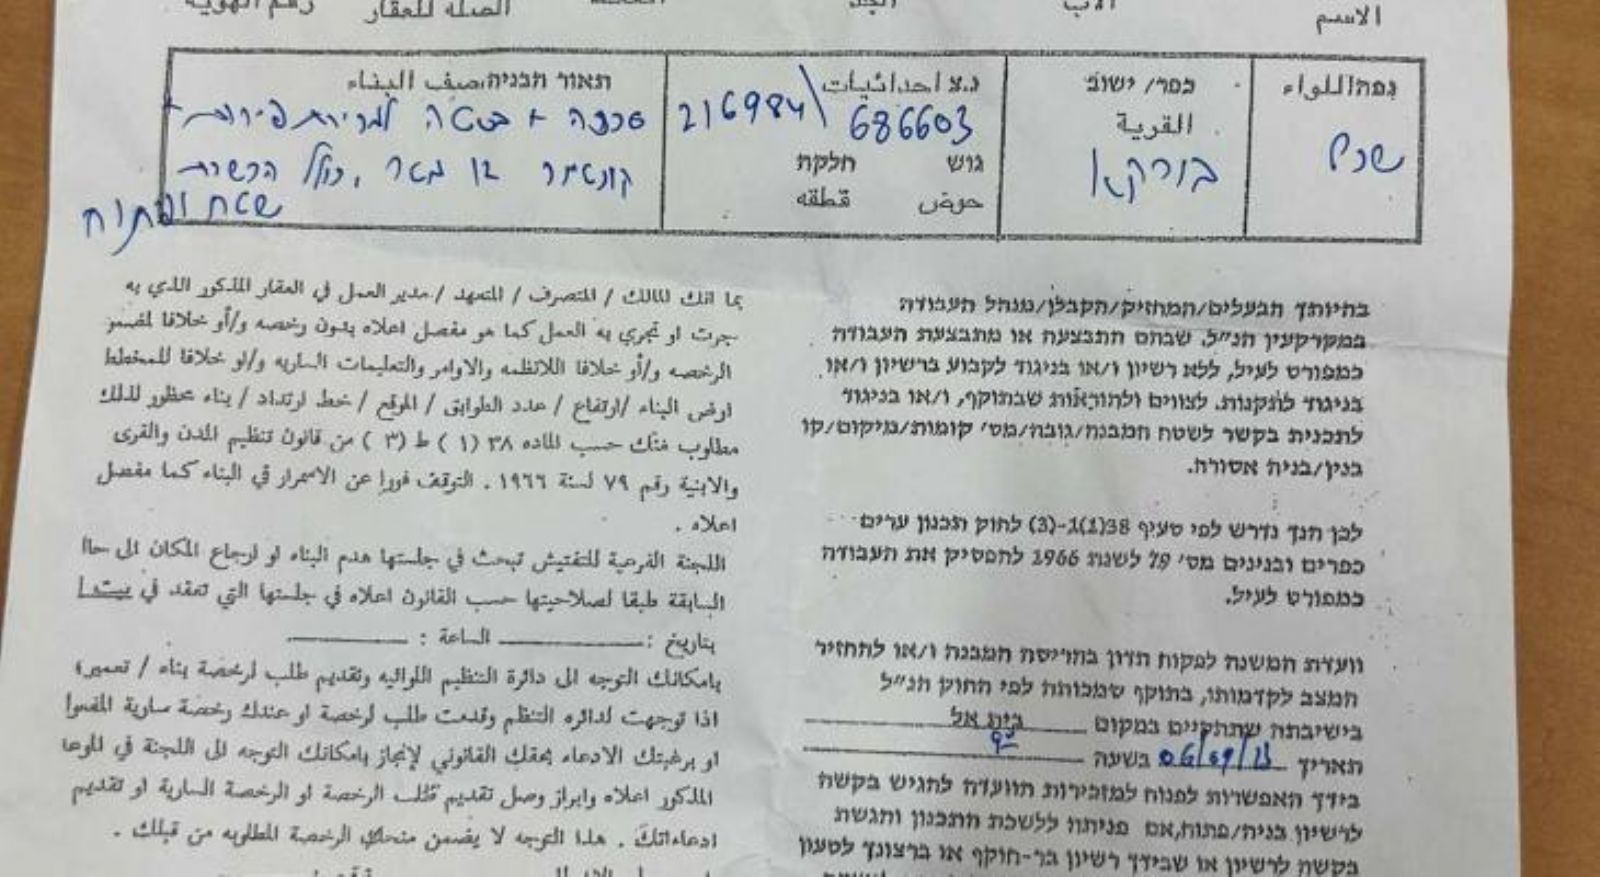 الاسم الاب الجد الصله للعقار رقم الهوية
נפה اللواء
שכם
כפר/ ישוב
القرية
בורקא
נ.צ احداثيات
216984\ 686603
גוש חלקת
حوض قطقه
תאור הבניה وصف البناء
סככה + בסטה למכירת פירות +
קונטינר 12 מטר, כולל הכשרת
שטח ופתוח
בהיותך הבעלים/המחזיק/הקבלן/מנהל העבודה
במקרקעין הנ"ל, שבהם התבצעה או מתבצעת העבודה
כמפורט לעיל, ללא רשיון ו/או בניגוד לקבוע ברשיון ו/או
בניגוד לתקנות, לצווים ולהוראות שבתוקף, ו/או בניגוד
לתכנית בקשר לשטח המבנה/גובה/מס' קומות/מיקום/קו
בנין/בניה אסורה.
לכן הנך נדרש לפי סעיף 38(1)ו-(3) לחוק תכנון ערים
כפרים ובנינים מס' 79 לשנת 1966 להפסיק את העבודה
כמפורט לעיל.
וועדת המשנה לפקוח תדון בהריסת המבנה ו/או להחזיר
המצב לקדמותו, בתוקף סמכותה לפי החוק הנ"ל
בישיבתה שתתקיים במקום בית אל
תאריך בשעה
בידך האפשרות לפנות למזכירות הוועדה להגיש בקשה
לרשיון בניה/פתוח, אם פניתה ללשכת התכנון והגשת
בקשה לרשיון או שבידך רשיון בר-תוקף או ברצונך לטעון
بما انك المالك / المتصرف / المتعهد / مدير العمل في العقار المذكور الذي به
جرت او تجري به العمل كما هو مفصل اعلاه بدون رخصه و/أو خلافا لمضمون
الرخصه و/أو خلافا اللانظمه والاوامر والتعليمات الساريه و/او خلافا للمخطط
ارض البناء /ارتفاع / عدد الطوابق / الموقع / خط ارتداد / بناء محظور لذلك
مطلوب منك حسب الماده ٣٨ (١) ط (٣) من قانون تنظيم المدن والقرى
والابنية رقم ٧٩ لسنة ١٩٦٦ . التوقف فورا عن الاسمرار في البناء كما مفصل
اعلاه .
اللجنة الفرعية للتفتيش تبحث في جلستها هدم البناء او ارجاع المكان الى
السابقة طبقا لصلاحيتها حسب القانون اعلاه في جلستها التي تعقد في
بتاريخ : الساعة :
بامكانك التوجه الى دائرة التنظيم اللوائيه وتقديم طلب لرخصة بناء / تعمير؛
اذا توجهت لدائره التنظم وقدمت طلب لرخصة او عندك رخصة سارية
او برغبتك الادعاء بحقك القانوني لإنجاز بامكانك التوجه الى اللجنة في
المذكور اعلاه وابراز وصل تقديم طلب الرخصة او الرخصة السارية او تقديم
ادعاءاتك . هذا التوجه لا يضمن منحك الرخصة المطلوبه من قبلك .